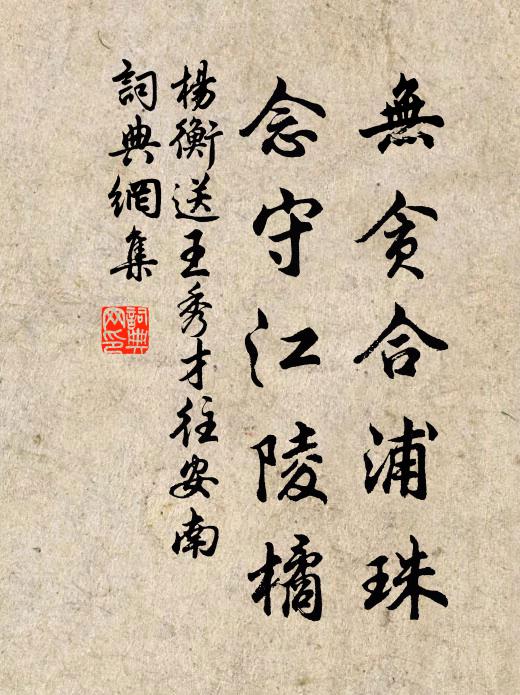 無貪合浦珠
念守江陵橘
楊衡送王秀才往安南
詞典網集
詞典
网印